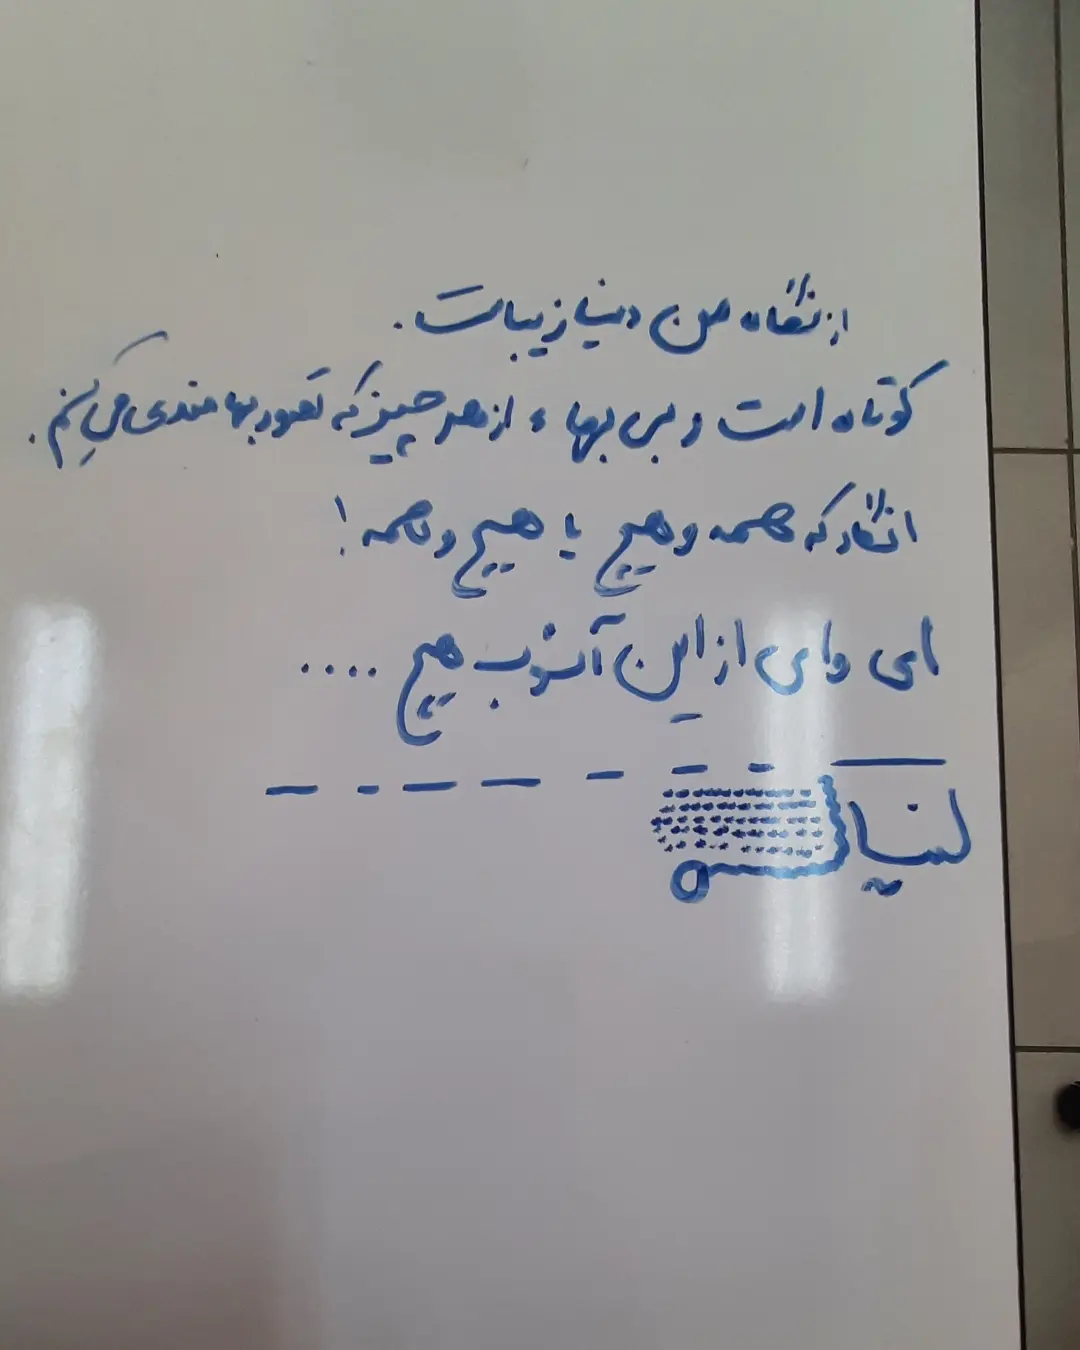 از نگاه من دنیا زیباست.
کوتاه است و بی بهاء از هر چیز که تصور بها مندی می کنیم.
انگار که همه و هیچ یا هیچ و همه!
ای وای از این آشوب هیچ ....